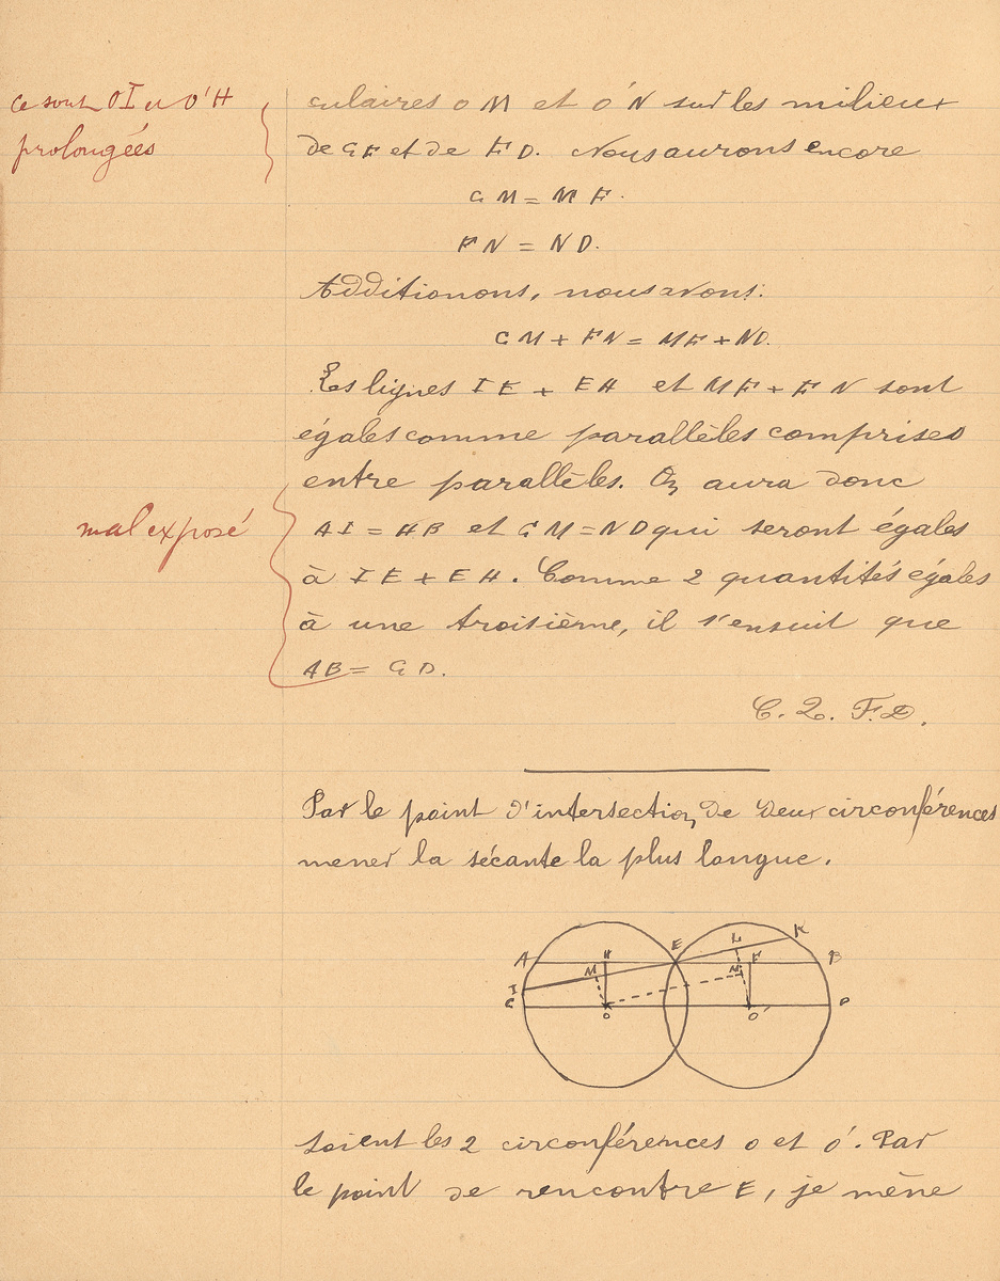 ce sont OI et O'H
prolongées
culaires OM et O'N sur les milieux
de GF et de FD. Nous aurons encore
GM = MF.
FN = ND.
Additionons, nous avons:
GM + FN = MF + ND.
Les lignes IE + EH et MF + FN sont
égales comme parallèles comprises
entre parallèles. On aura donc
mal exposé
AI = HB et GM = ND qui seront égales
à IE + EH. Comme 2 quantités égales
à une troisième, il s'ensuit que
AB = GD.
C. Q. F. D.
Par le point d'intersection de deux circonférences
mener la sécante la plus longue.
A
H
E
L
K
F
B
I
M
N
C
O
O'
P
Soient les 2 circonférences O et O'. Par
le point de rencontre E, je mène